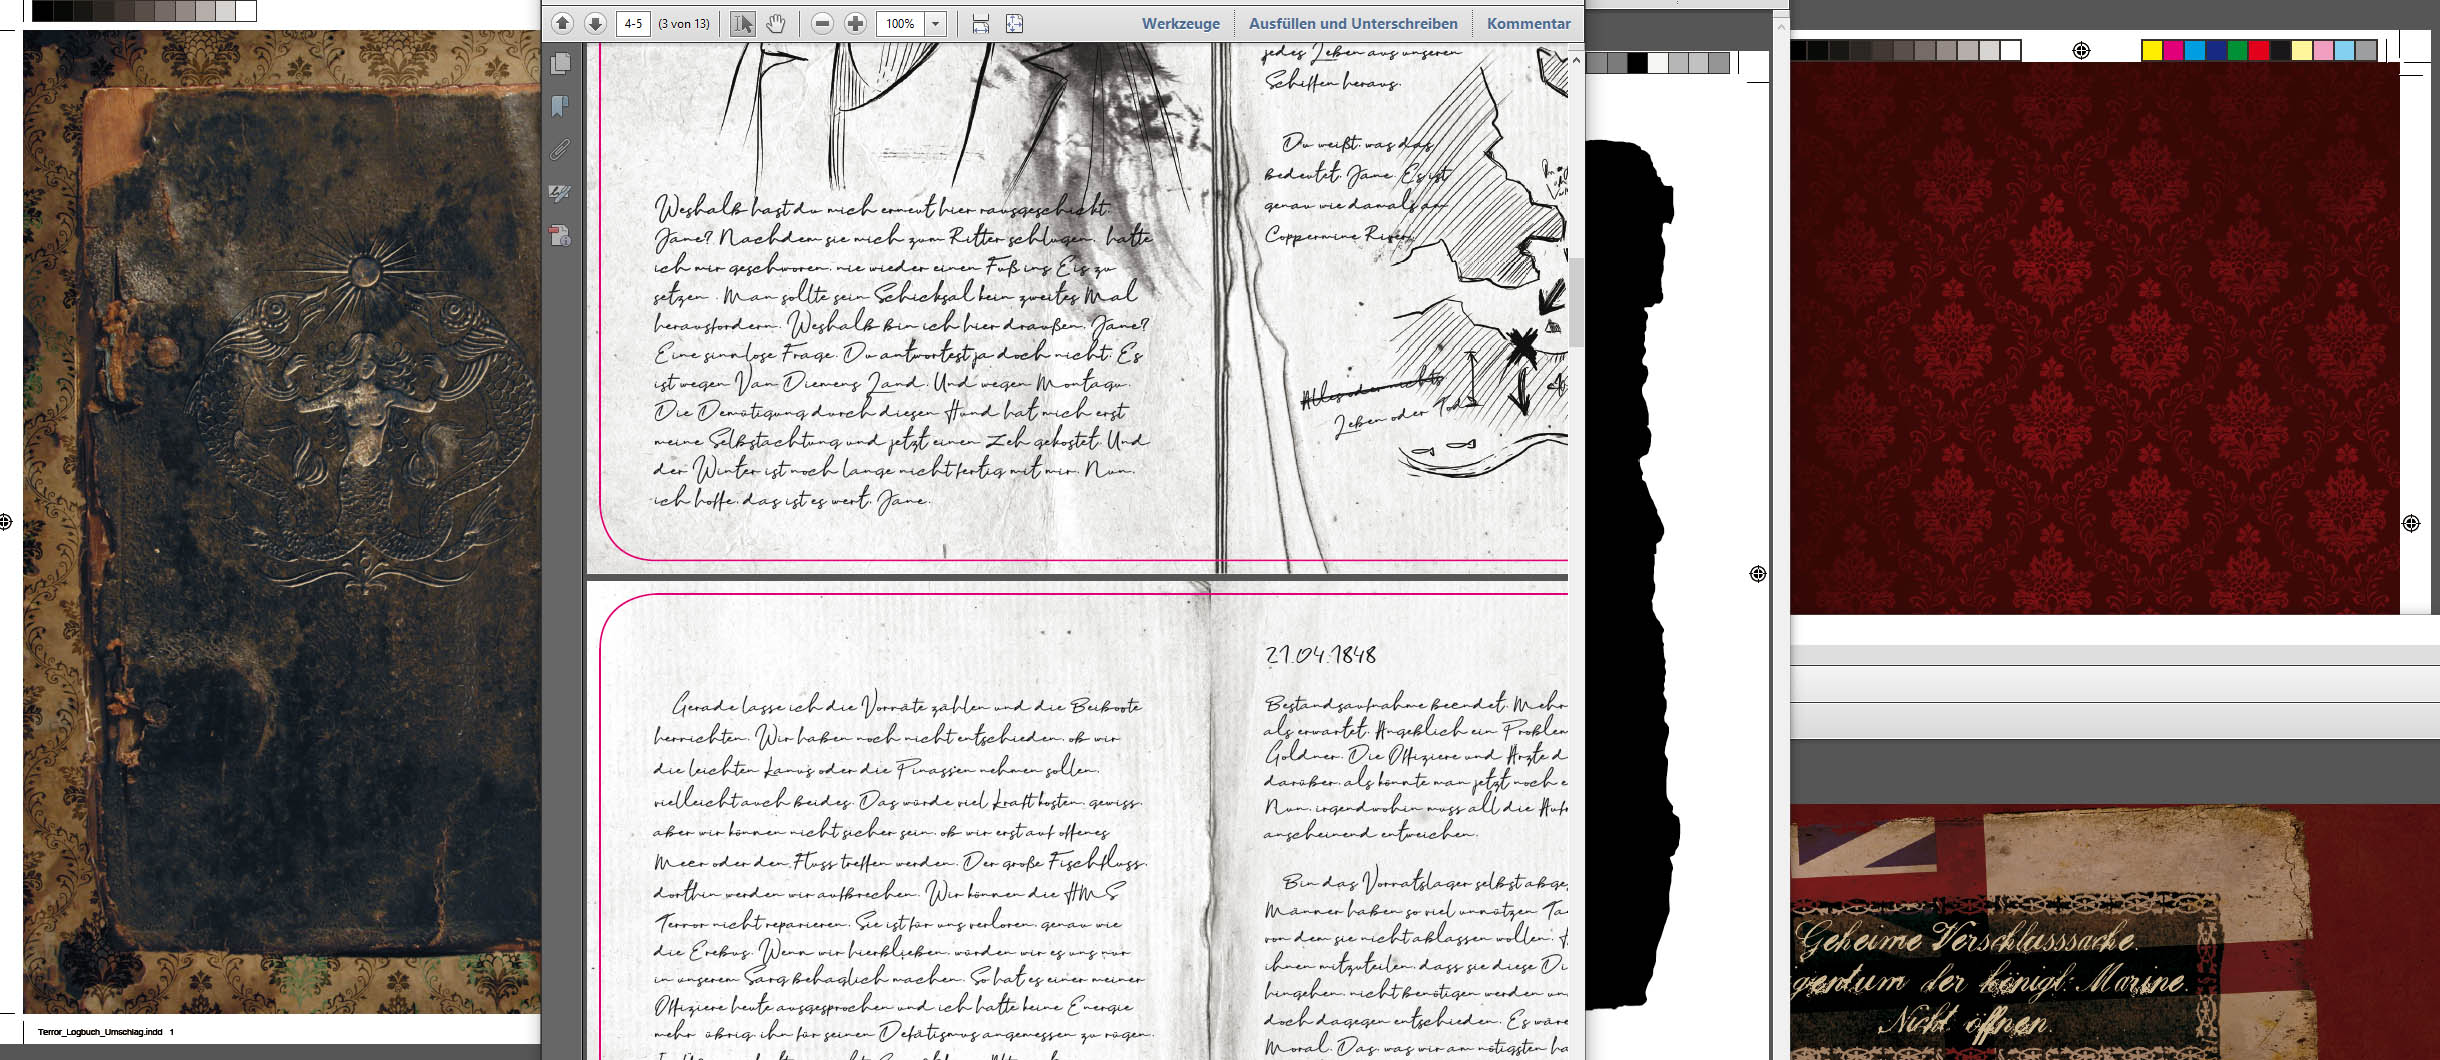 4-5 (3 von 13) 100% Werkzeuge Ausfüllen und Unterschreiben Kommentar
Weshalb hast du mich erneut hier rausgeschickt,
Jane? Nachdem sie mich zum Ritter schlugen, hatte
ich mir geschworen, nie wieder einen Fuß ins Eis zu
setzen. Man sollte sein Schicksal kein zweites Mal
herausfordern. Weshalb bin ich hier draußen, Jane?
Eine sinnlose Frage. Du antwortest ja doch nicht. Es
ist wegen Van Diemens Land. Und wegen Montagu.
Die Demütigung durch diesen Hund hat mich erst
meine Selbstachtung und jetzt einen Zeh gekostet. Und
der Winter ist noch lange nicht fertig mit mir. Nun,
ich hoffe, das ist es wert, Jane.
jedes Leben aus unseren
Schiffen heraus.
Du weißt, was das
bedeutet, Jane. Es ist
genau wie damals am
Coppermine River.
Alles oder nichts
Leben oder Tod
Gerade lasse ich die Vorräte zählen und die Beiboote
herrichten. Wir haben noch nicht entschieden, ob wir
die leichten Kanus oder die Pinassen nehmen sollen,
vielleicht auch beides. Das würde viel Kraft kosten, gewiss,
aber wir können nicht sicher sein, ob wir erst auf offenes
Meer oder den Fluss treffen werden. Der große Fischfluss,
dorthin werden wir aufbrechen. Wir können die HMS
Terror nicht reparieren. Sie ist für uns verloren, genau wie
die Erebus. Wenn wir hierblieben, würden wir es uns nur
in unserem Sarg behaglich machen. So hat es einer meiner
Offiziere heute ausgesprochen und ich hatte keine Energie
mehr übrig ihn für seinen Defätismus angemessen zu rügen.
21.04.1848
Bestandsaufnahme beendet. Mehr
als erwartet. Angeblich ein Problem
Goldner. Die Offiziere und Ärzte d
darüber, als könnte man jetzt noch e
Nun, irgendwohin muss all die Aufr
anscheinend entweichen.
Bin das Vorratslager selbst abge
Männer haben so viel unnützen Ta
von dem sie nicht ablassen wollen.
ihnen mitzuteilen, dass sie diese Di
hingehen, nicht benötigen werden un
doch dagegen entschieden. Es wäre
Moral. Das, was wir am nötigsten ha
Geheime Verschlusssache.
igentum der königl. Marine.
Nicht öffnen.
Terror_Logbuch_Umschlag.indd 1